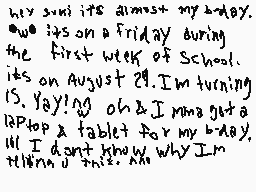 hey suki its almost my b-day.
•w• its on a friday during
the first week of school.
its on August 29. I'm turning
15. Yay!ng oh & I mma get a
laptop & tablet for my b-day.
lol I dont know why I'm
telling u this.